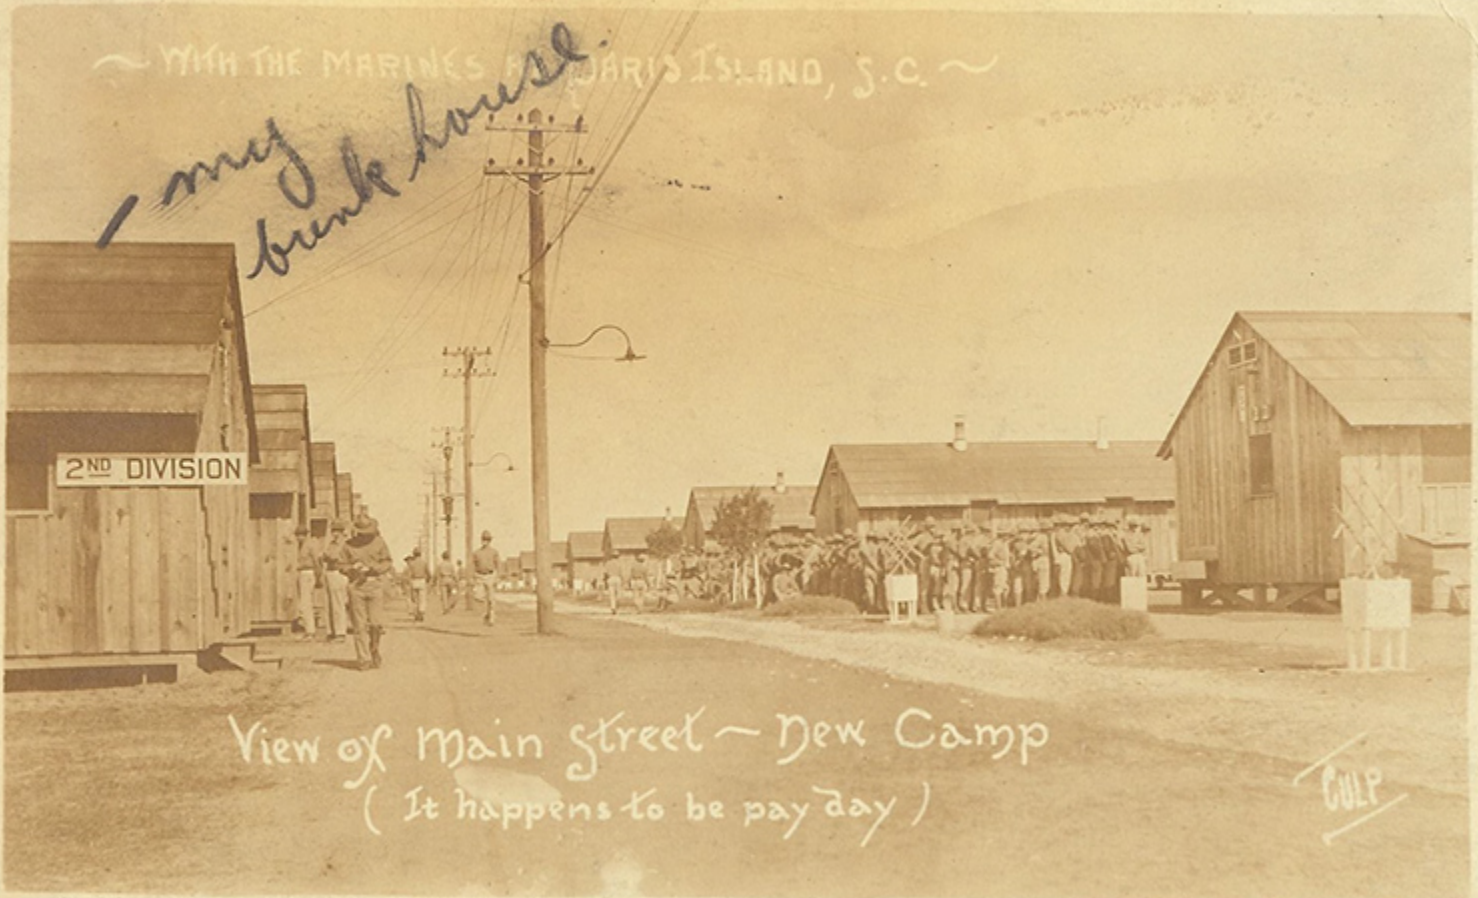 ~ WITH THE MARINES AT PARIS ISLAND, S.C. ~
- my
bunk house.
2ND DIVISION
View of Main Street ~ New Camp
( It happens to be pay day )
CULP